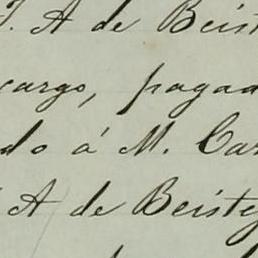 J. A de Beist
cargo, pagad
do á M. Car
A de Beistey